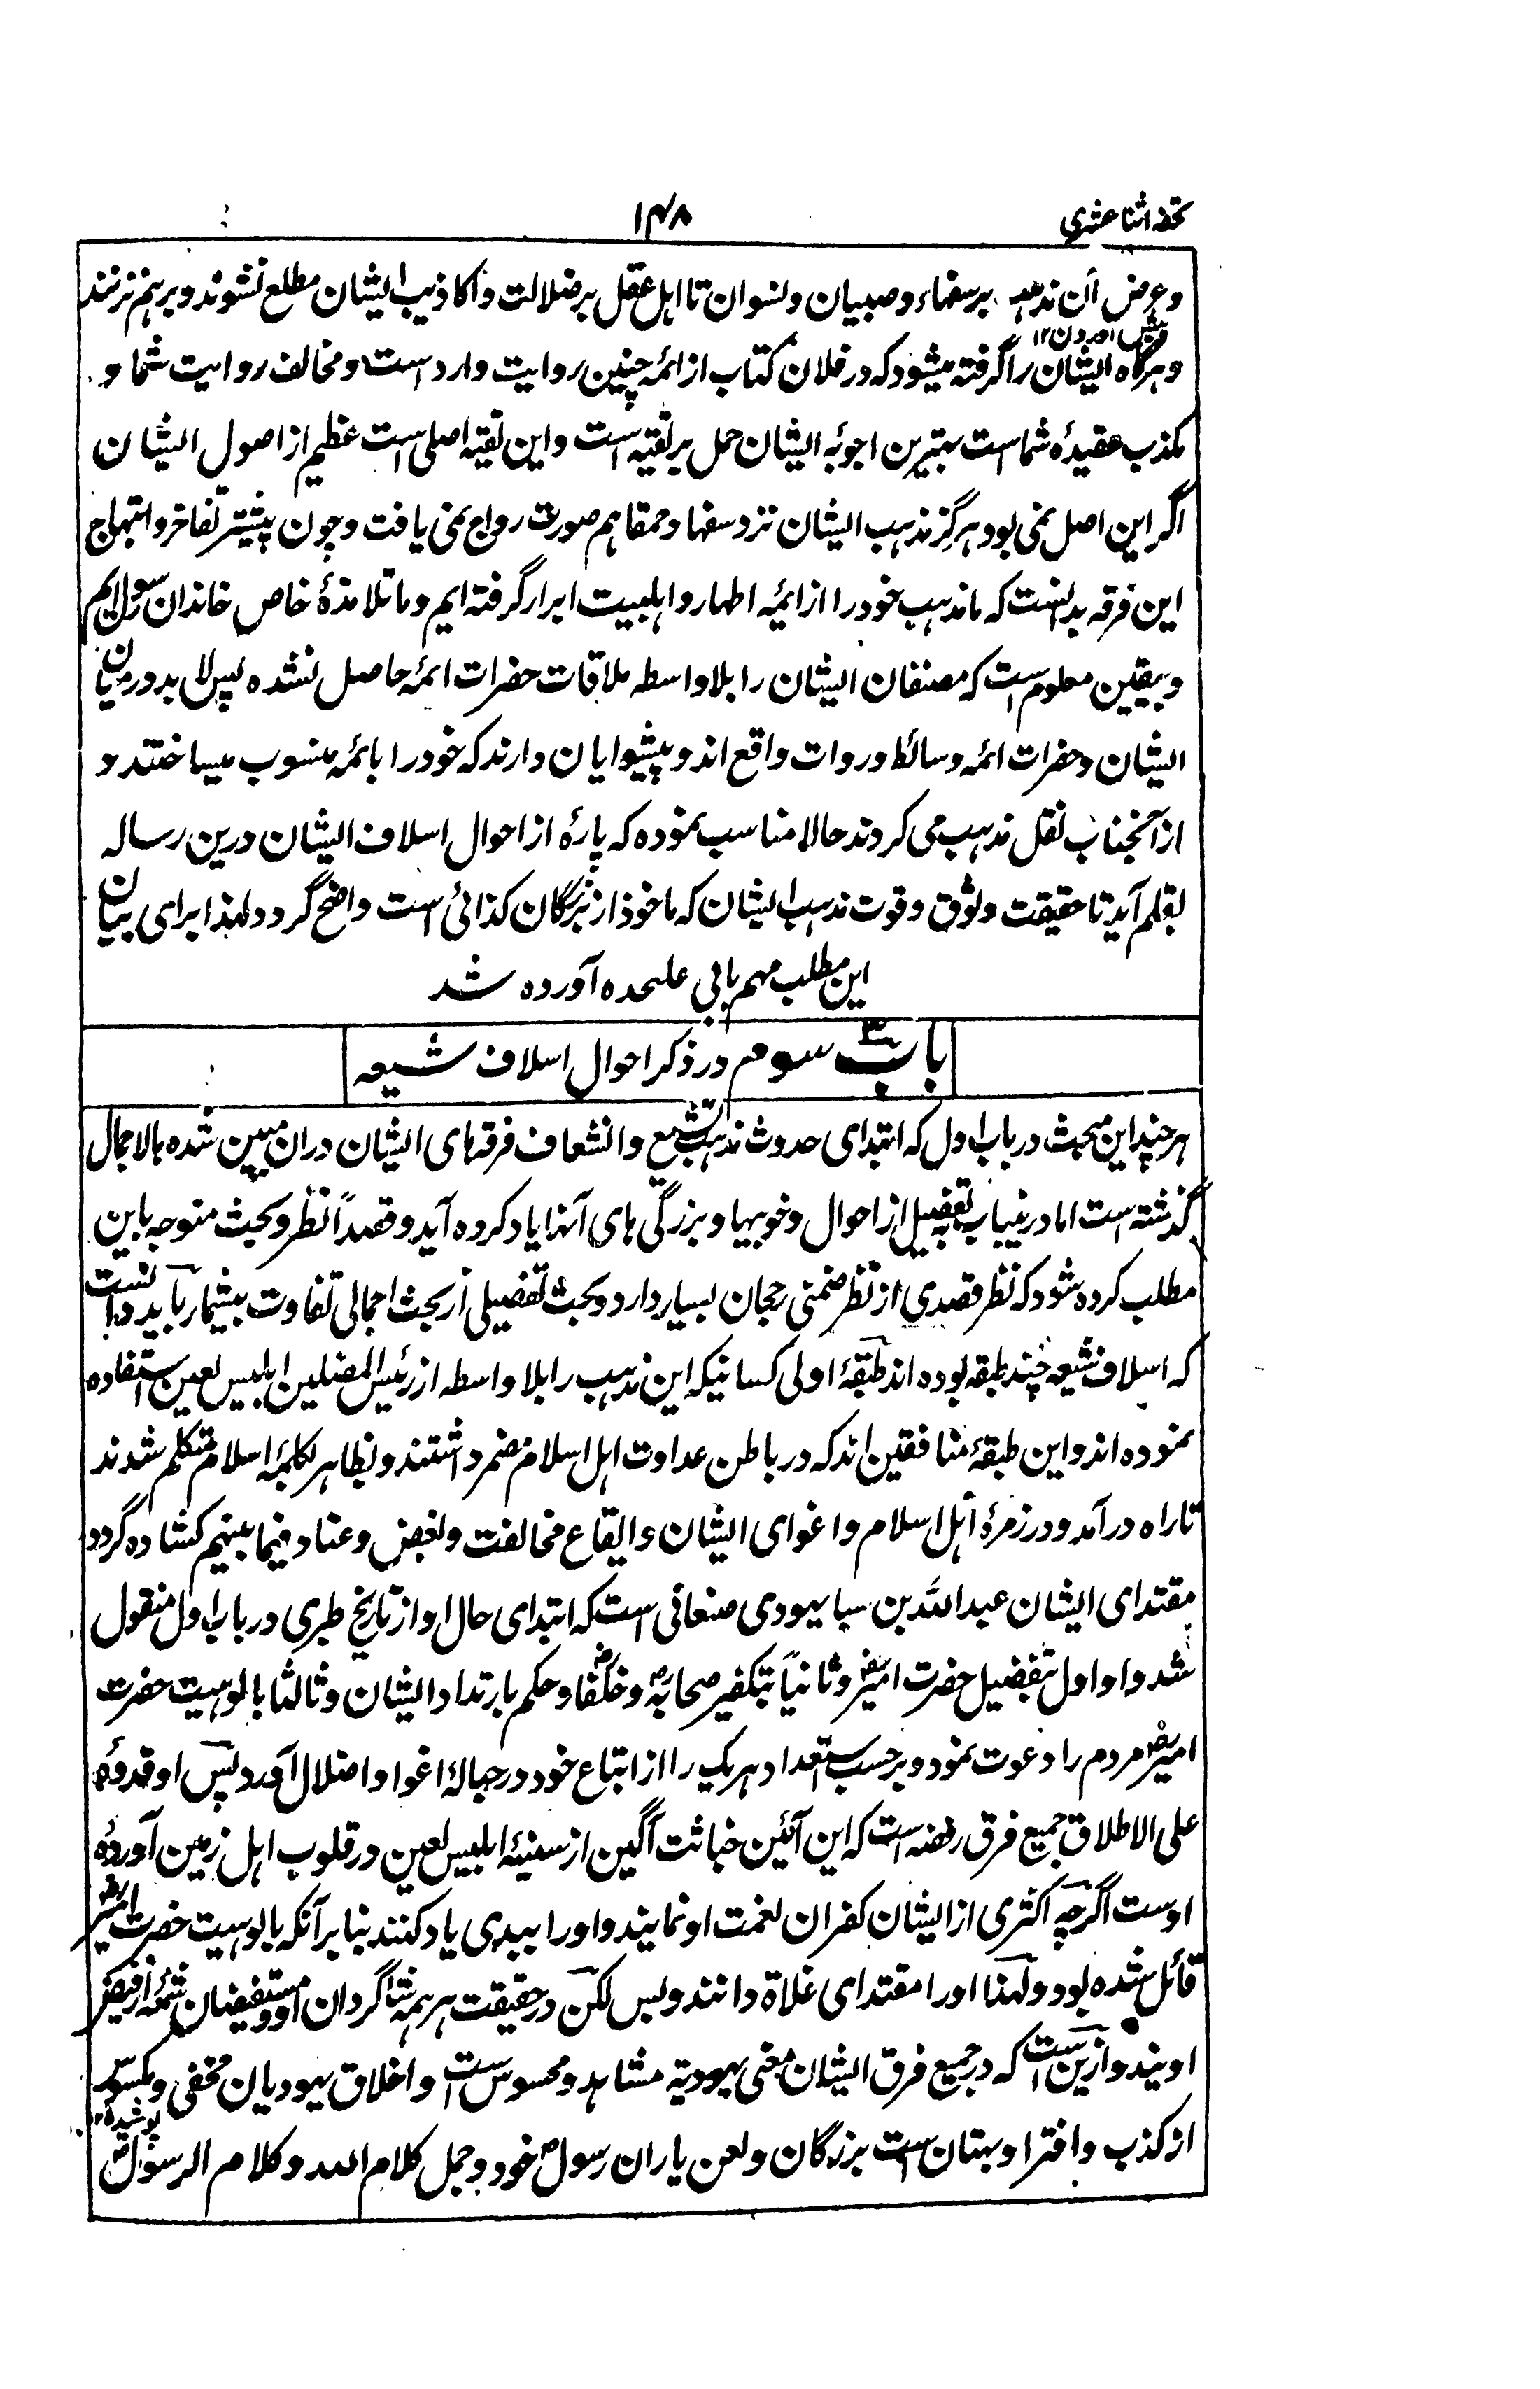 تحفه اثنا عشری
۱۴۸
وعرض آن مذهب بر سفهاء وصبیان ونسوان تا اهل عقل بر ضلالت واکاذیب ایشان مطلع نشوند وبرهم نزنند
پیش آوردن ۱۲
وهرگاه ایشان را گرفته میشود که در فلان کتاب از ائمه چنین روایت وارد است ومخالف روایت شما و
مکذب عقیدهٔ شماست بهترین اجوبه ایشان حمل بر تقیه است واین تقیه اصلی است عظیم از اصول ایشان
اگر این اصل نمی بود هرگز مذهب ایشان نزد سفها وحمقا هم صورت رواج نمی یافت وچون بیشتر تفاخر وابتهاج
این فرقه بدانست که ما مذهب خود را از ائمه اطهار واهلبیت ابرار گرفته ایم وما تلامذهٔ خاص خاندان رسول ایم
وبیقین معلوم است که مصنفان ایشان را بلا واسطه ملاقات حضرات ائمه حاصل نشده پس لابد در میان
ایشان وحضرات ائمه وسائط وروات واقع اند وپیشوایان دارند که خود را بائمه منسوب میساختند و
از آنجناب نقل مذهب می کردند حالا مناسب نموده که پارهٔ از احوال اسلاف ایشان درین رساله
بقلم آید تا حقیقت وثوق وقوت مذهب ایشان که ماخوذ از بزرگان کذائی است واضح گردد لهذا برای بیان
این مطلب مهم بابی علحده آورده شد
باب سوم در ذکر احوال اسلاف شیعه
۳
هر چند این مبحث در باب اول که ابتدای حدوث مذهب تشیع وانشعاف فرقهای ایشان دران مبین شده بالاجمال
گذشته است اما درینباب بتفصیل از احوال وخوبیها وبزرگی های آنها یاد کرده آید وقصداً نظر وبحث متوجه باین
مطلب کرده شود که نظر قصدی از نظر ضمنی رجحان بسیار دارد وبحث تفصیلی از بحث اجمالی تفاوت بیشمار باید دانست
که اسلاف شیعه چند طبقه بوده اند طبقهٔ اولی کسانیکه این مذهب را بلا واسطه از رئیس المضلین ابلیس لعین استفاده
نموده اند واین طبقهٔ منافقین اند که در باطن عداوت اهل اسلام مضمر داشتند وبظاهر بکلمهٔ اسلام متکلم شدند
تا راه درآمد ودر زمرهٔ اهل اسلام واغوای ایشان وایقاع مخالفت وبغض وعناد فیما بینهم کشاده گردد
مقتدای ایشان عبد الله بن سبا یهودی صنعانی است که ابتدای حال او از تاریخ طبری در باب اول منقول
شد واو اول بتفضیل حضرت امیرؓ وثانیاً بتکفیر صحابهؓ وخلفاؓ وحکم بارتداد ایشان وثالثا بالوهیت حضرت
امیرؓ مردم را دعوت نمود وبر حسب استعداد هر یک را از اتباع خود در حبالهٔ اغوا واضلال آورد پس او قدوهٔ
علی الاطلاق جمیع فرق رفضه است که این آئین خباثت آگین از سینهٔ ابلیس لعین در قلوب اهل زمین آوردهٔ
اوست اگرچه اکثری از ایشان کفران نعمت او نمایند واو را ببدی یاد کنند بنا بر آنکه بالوهیت حضرت امیرؓ
قائل شده بود ولهذا او را مقتدای غلاة دانند وبس لکن در حقیقت هر همه شاگردان او ومستفیضان شمه از فیض
اویند وازین است که در جمیع فرق ایشان معنی یهودیه مشاهد ومحسوس است واخلاق یهودیان مخفی ومکسوس
پوشیده
از کذب وافترا وبهتان است بزرگان ولعن یاران رسولؐ خود وحمل کلام الله وکلام الرسولؐ